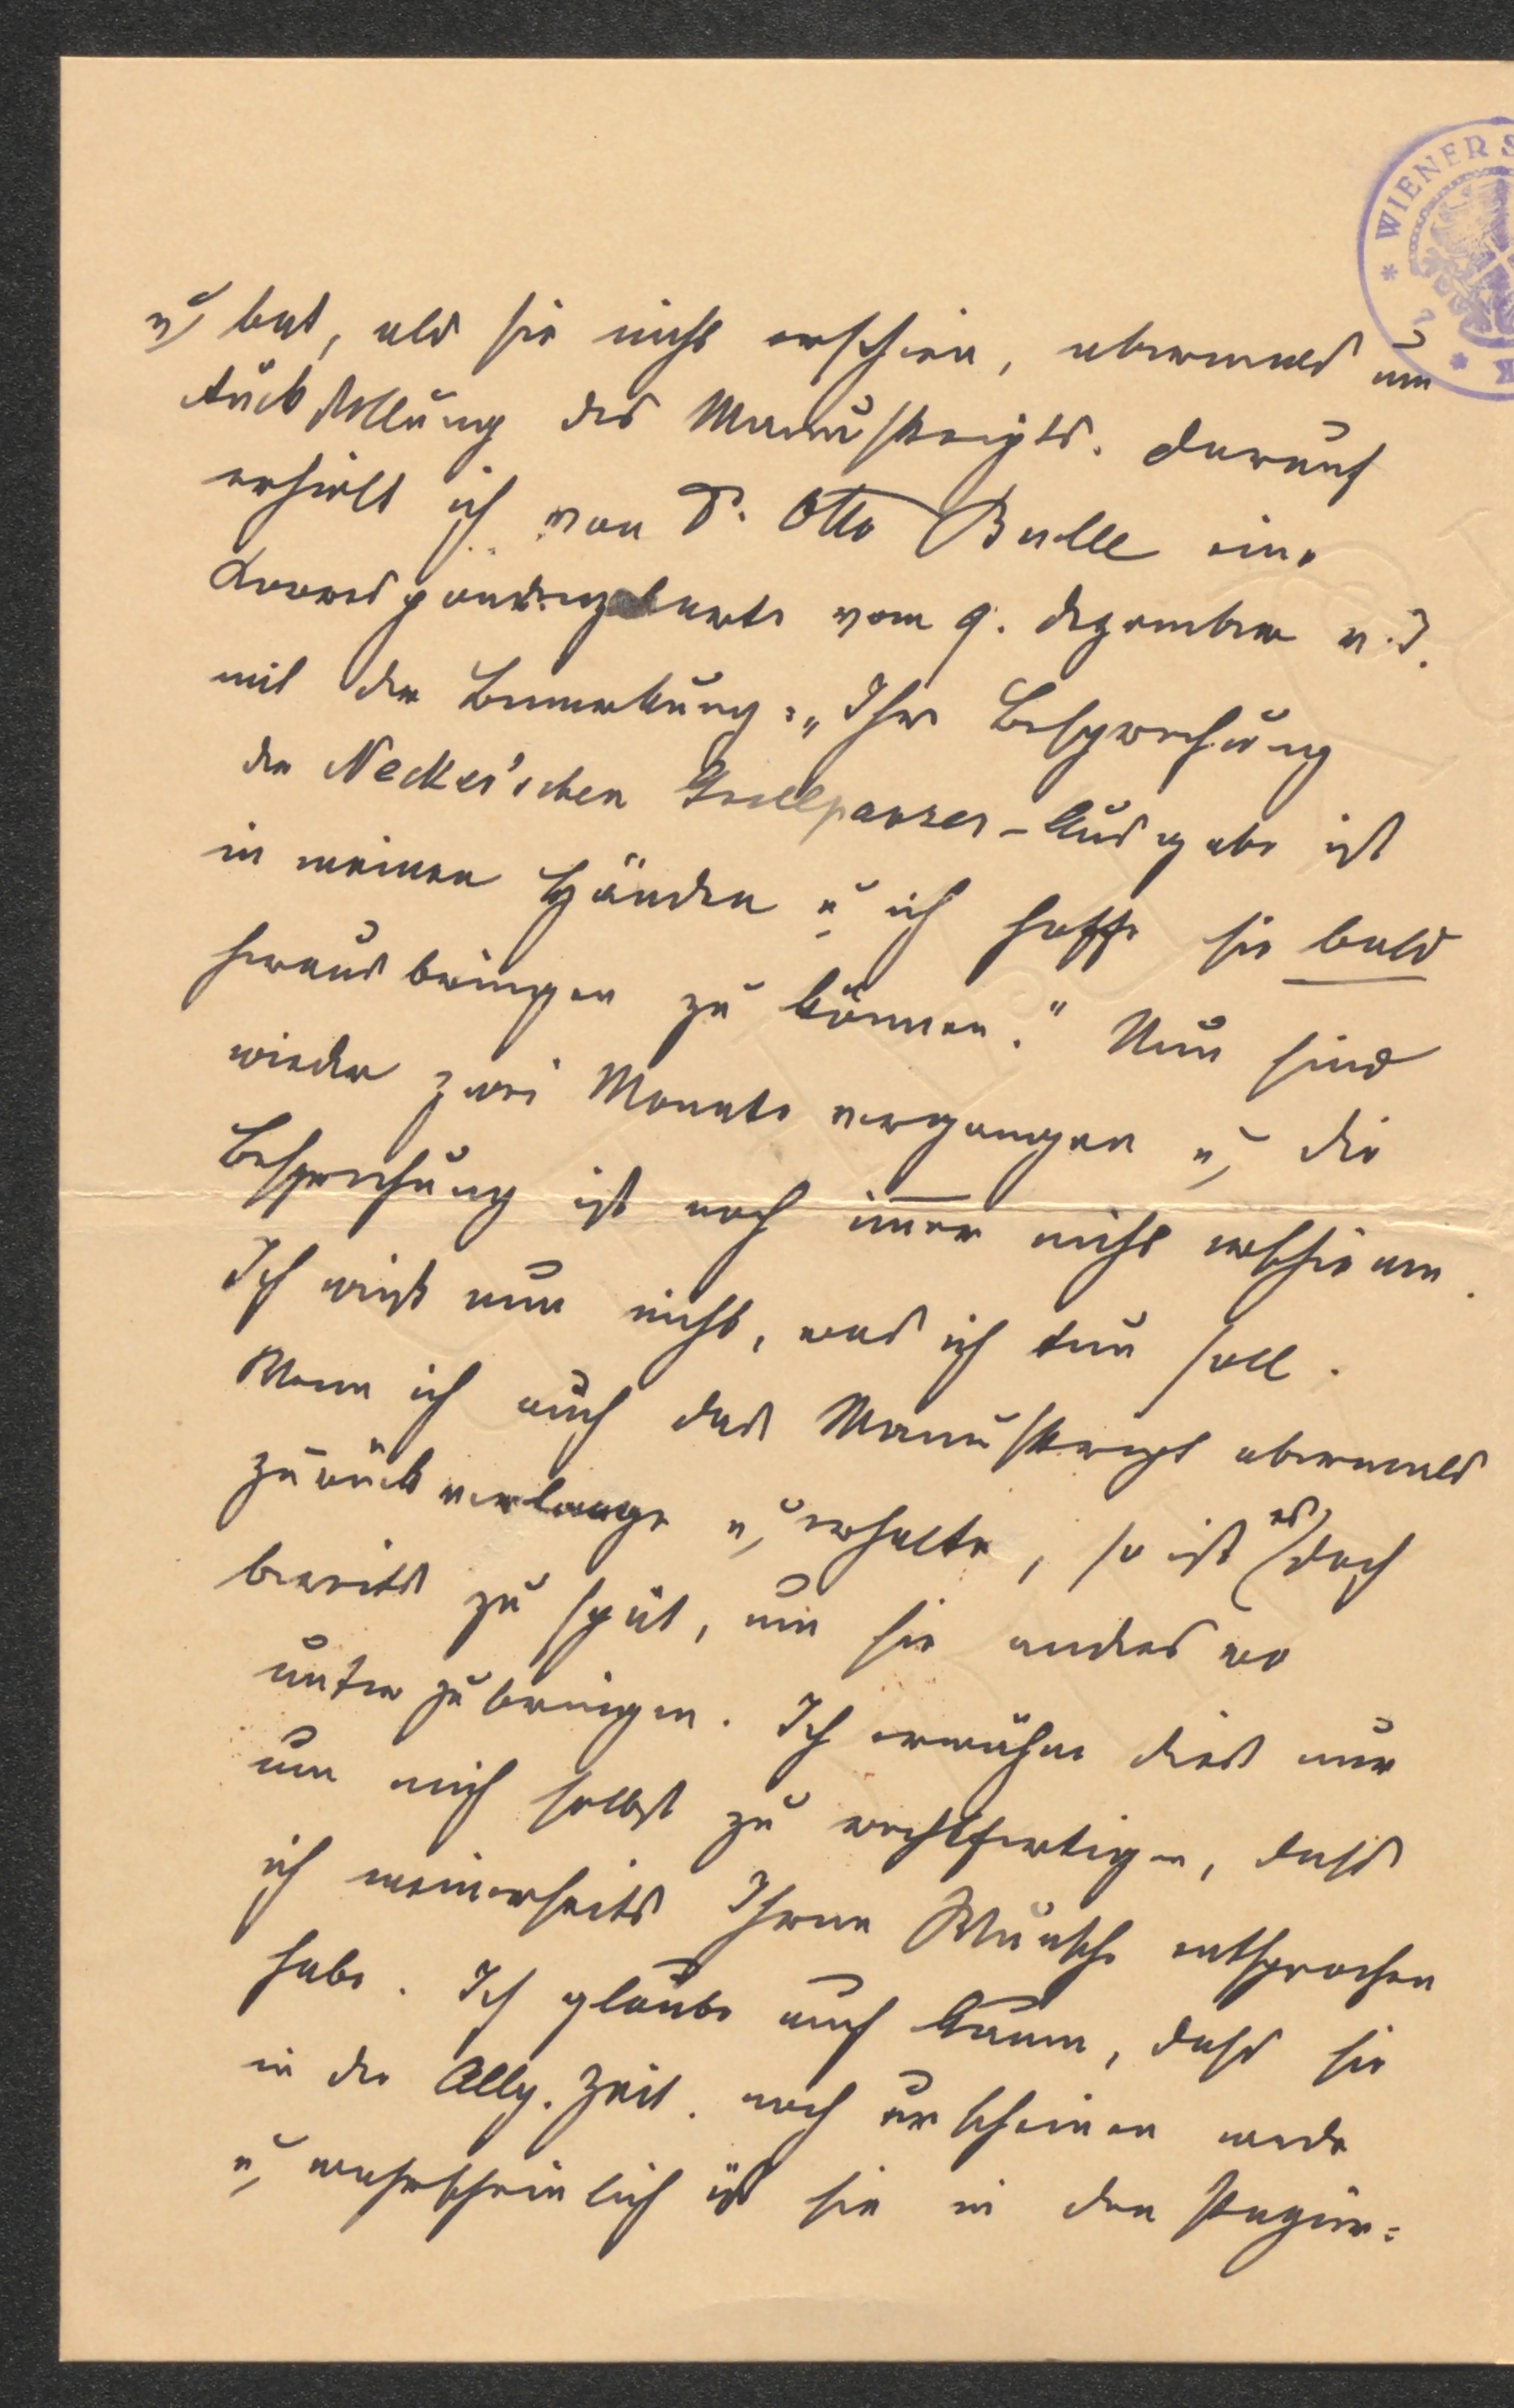 WIENER S
K
u. bat, als sie nicht erschien, abermals um
Rückstellung des Manuskripts. Darauf
erhielt ich von Dr. Otto Bulle eine
Correspondenzkarte vom 9. Dezember v. J.
mit der Bemerkung: „Ihre Besprechung
der Necker'schen Grillparzer-Ausgabe ist
in meinen Händen u. ich hoffe sie bald
herausbringen zu können." Nun sind
wieder zwei Monate vergangen u. die
Besprechung ist noch immer nicht erschienen.
Ich weiß nun nicht, was ich tun soll.
Wenn ich auch das Manuskript abermals
zurückverlange u. erhalte, so ist es doch
bereits zu spät, um sie anderswo
unterzubringen. Ich erwähne dies nur
um mich selbst zu rechtfertigen, dass
ich meinerseits Ihrem Wunsche entsprochen
habe. Ich glaube auch kaum, dass sie
in der Allg. Zeit. noch erscheinen werde
u. wahrscheinlich ist sie in den Papier=